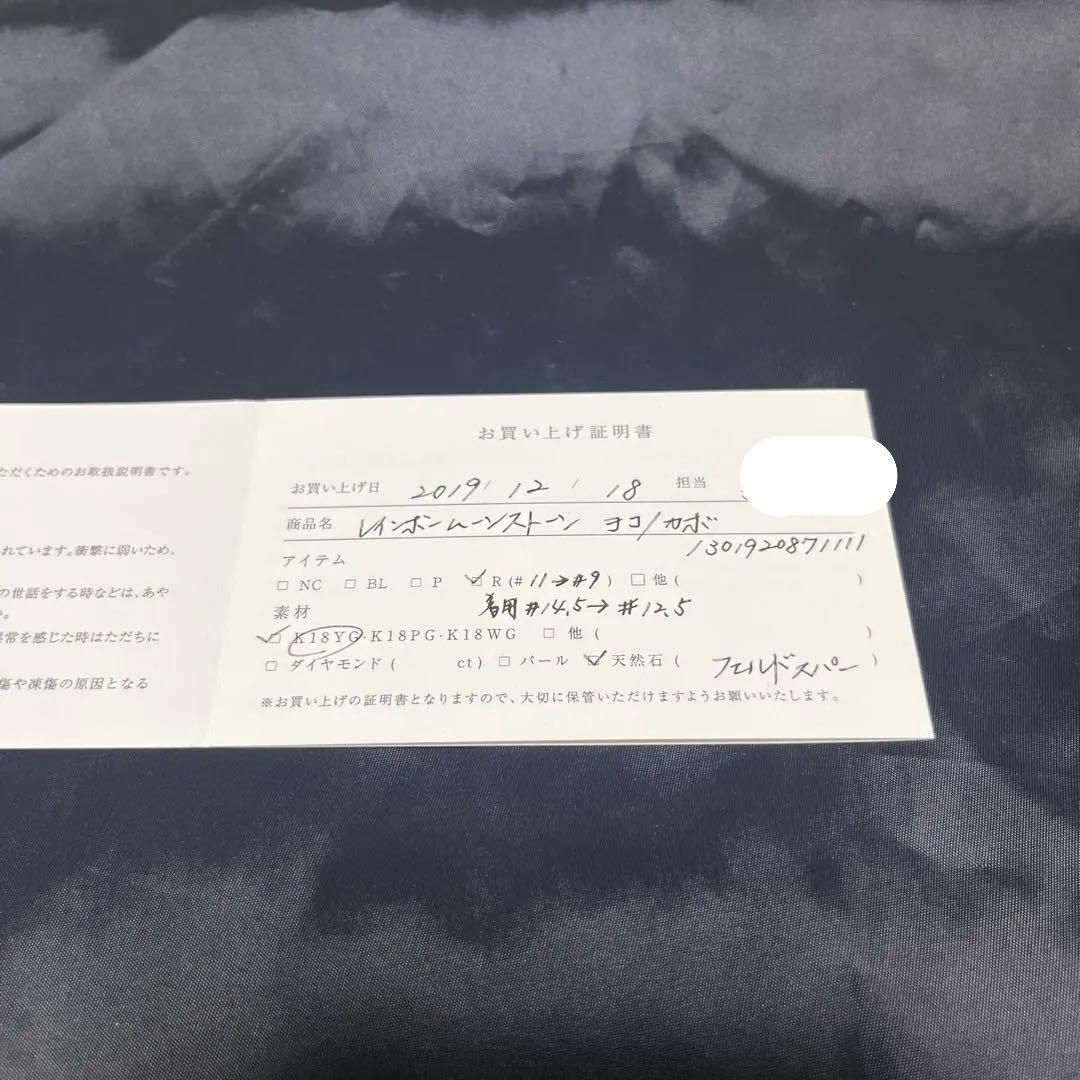 ただくためのお取扱説明書です。
れています。衝撃に弱いため、
の世話をする時などは、あや
。
異常を感じた時はただちに
傷や凍傷の原因となる
お買い上げ証明書
お買い上げ日 2019/ 12 / 18 担当
商品名 レインボームーンストーン ヨコ/カボ
1301920871111
アイテム
□ NC □ BL □ P ☑ R (# 11→#9 ) □ 他 ( )
着用#14.5→#12.5
素材
☑ K18YG・K18PG・K18WG □ 他 ( )
□ ダイヤモンド ( ct) □ パール ☑ 天然石 ( フェルドスパー )
※お買い上げの証明書となりますので、大切に保管いただけますようお願いいたします。